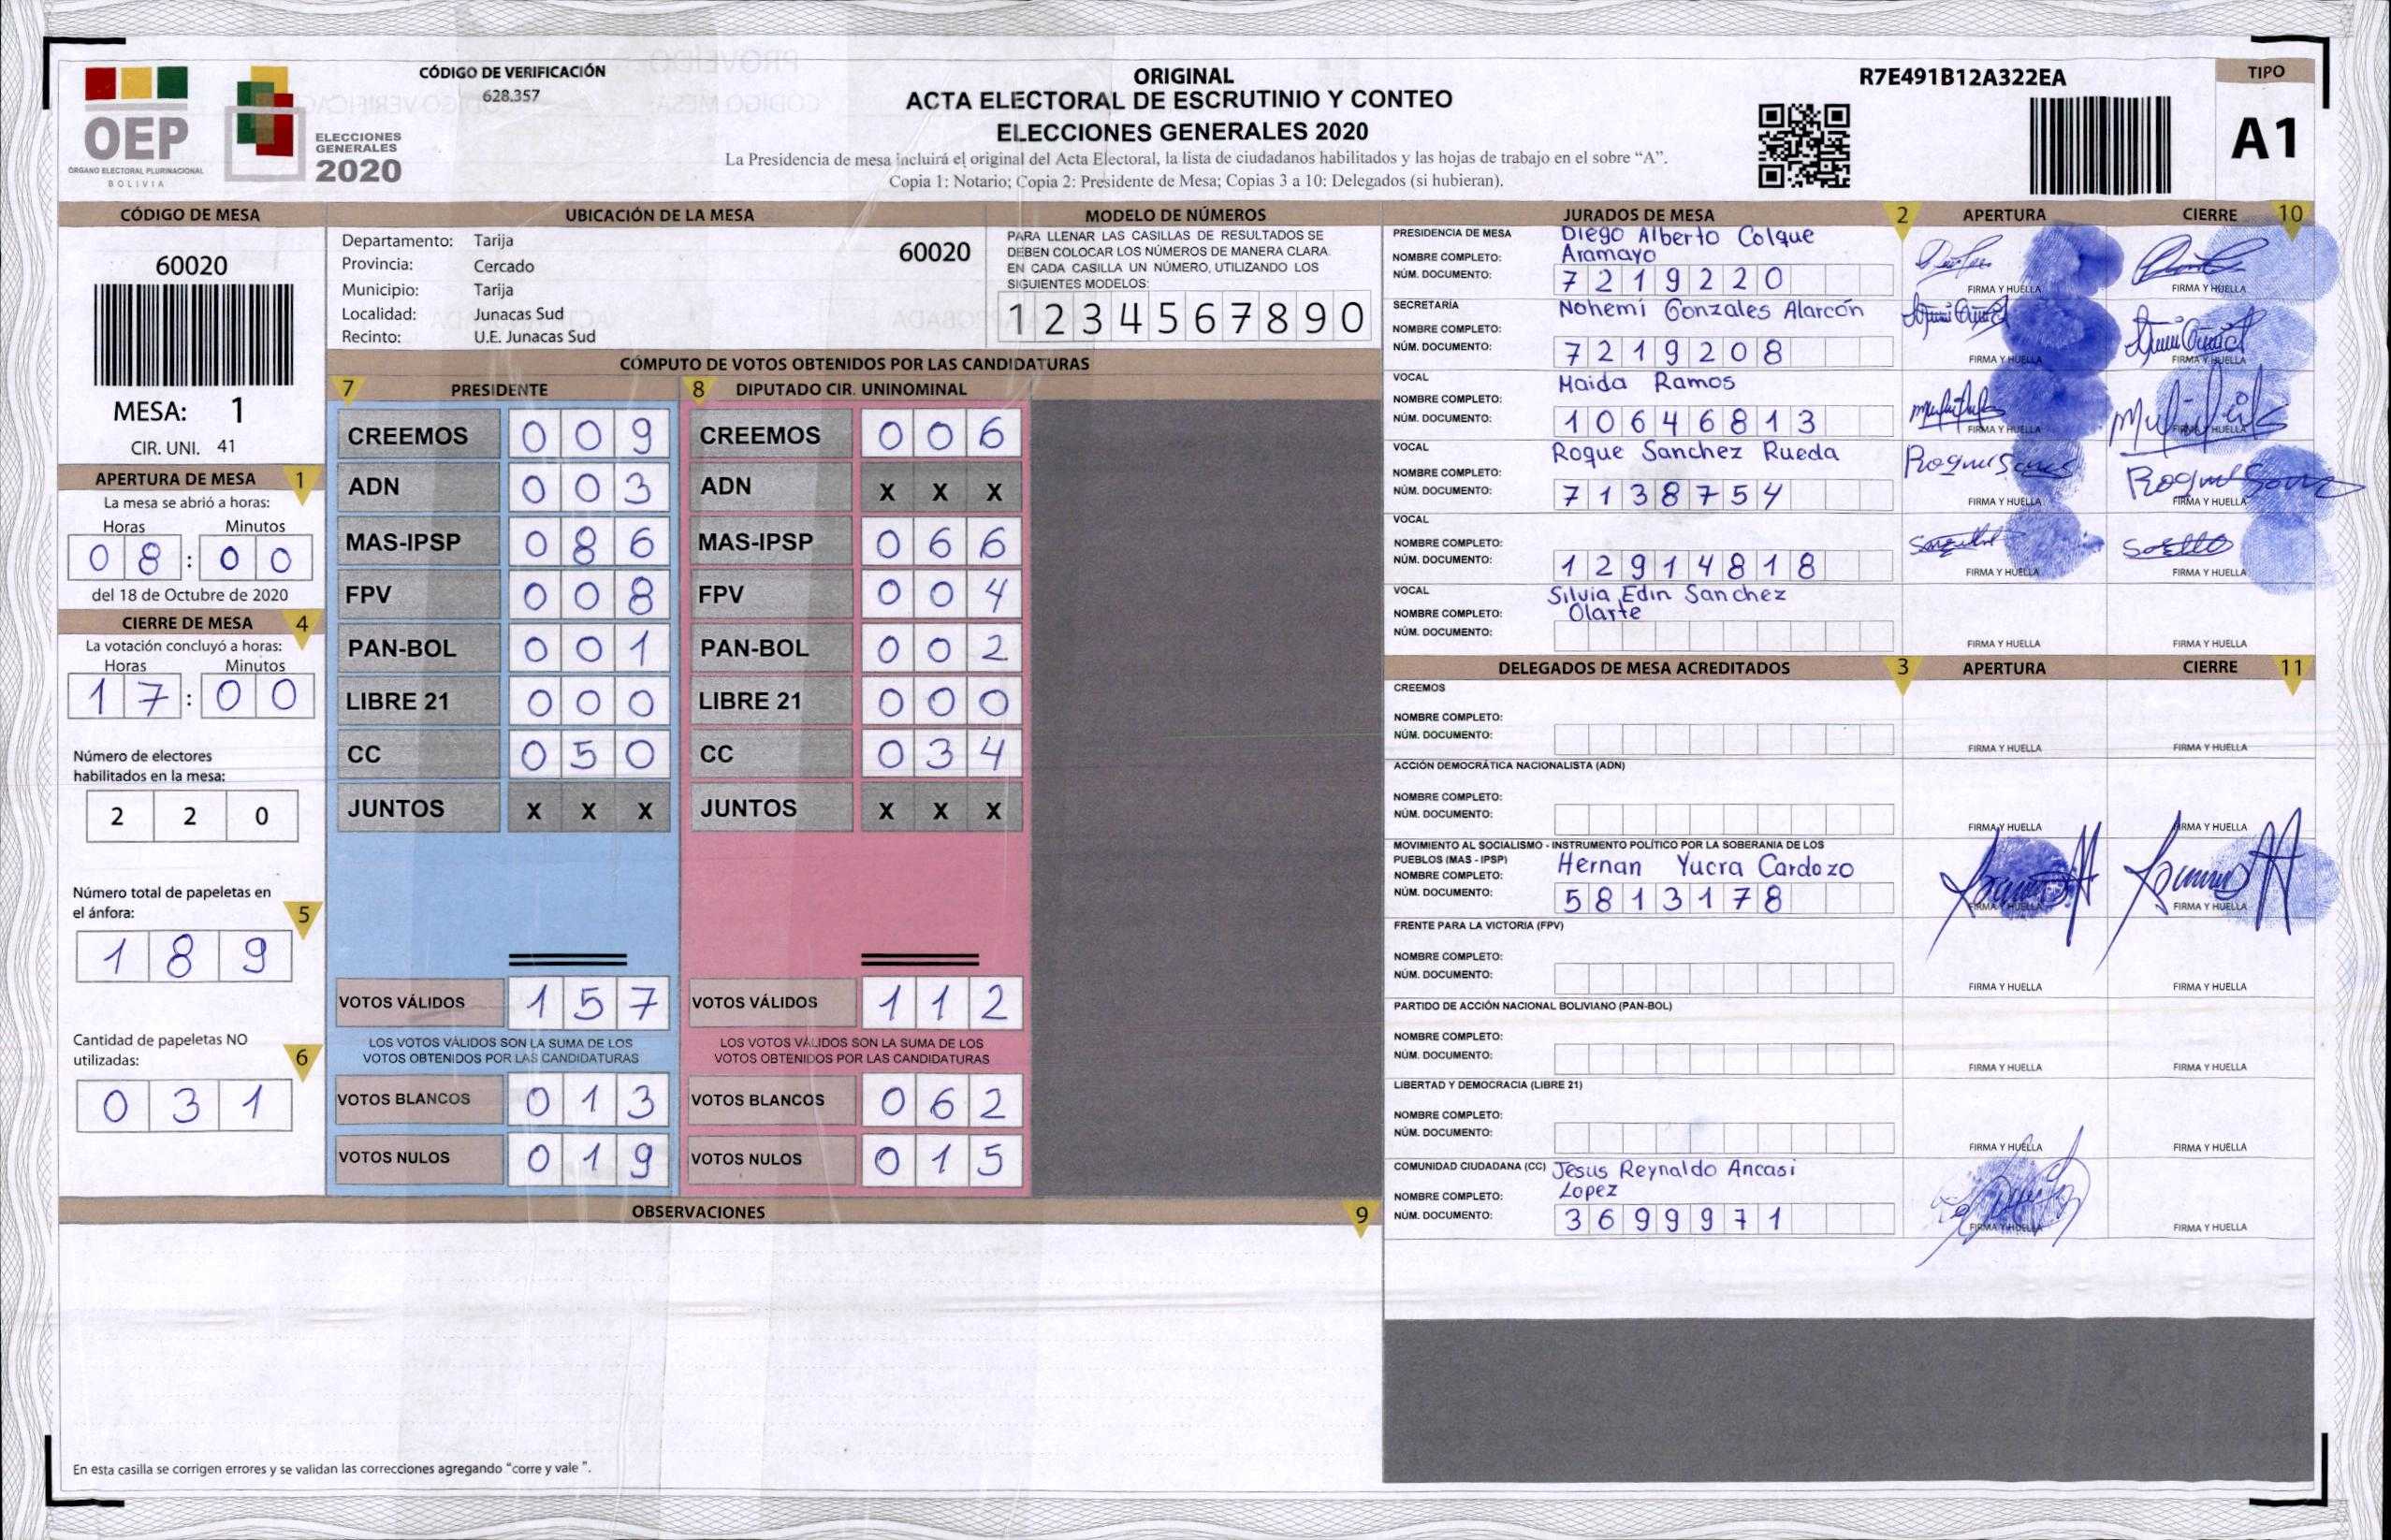 CÓDIGO DE VERIFICACIÓN
628.357
OEP
ÓRGANO ELECTORAL PLURINACIONAL
BOLIVIA
ELECCIONES
GENERALES
2020
ORIGINAL
ACTA ELECTORAL DE ESCRUTINIO Y CONTEO
ELECCIONES GENERALES 2020
La Presidencia de mesa incluirá el original del Acta Electoral, la lista de ciudadanos habilitados y las hojas de trabajo en el sobre “A”.
Copia 1: Notario; Copia 2: Presidente de Mesa; Copias 3 a 10: Delegados (si hubieran).
R7E491B12A322EA
TIPO
A1
CÓDIGO DE MESA
60020
MESA: 1
CIR. UNI. 41
APERTURA DE MESA 1
La mesa se abrió a horas:
Horas Minutos
0 8 : 0 0
del 18 de Octubre de 2020
CIERRE DE MESA 4
La votación concluyó a horas:
Horas Minutos
1 7 : 0 0
Número de electores
habilitados en la mesa:
2 2 0
Número total de papeletas en
el ánfora: 5
1 8 9
Cantidad de papeletas NO
utilizadas: 6
0 3 1
UBICACIÓN DE LA MESA
Departamento: Tarija
60020
Provincia: Cercado
Municipio: Tarija
Localidad: Junacas Sud
Recinto: U.E. Junacas Sud
MODELO DE NÚMEROS
PARA LLENAR LAS CASILLAS DE RESULTADOS SE
DEBEN COLOCAR LOS NÚMEROS DE MANERA CLARA.
EN CADA CASILLA UN NÚMERO, UTILIZANDO LOS
SIGUIENTES MODELOS:
1 2 3 4 5 6 7 8 9 0
CÓMPUTO DE VOTOS OBTENIDOS POR LAS CANDIDATURAS
7 PRESIDENTE 8 DIPUTADO CIR. UNINOMINAL
CREEMOS 0 0 9 CREEMOS 0 0 6
ADN 0 0 3 ADN X X X
MAS-IPSP 0 8 6 MAS-IPSP 0 6 6
FPV 0 0 8 FPV 0 0 4
PAN-BOL 0 0 1 PAN-BOL 0 0 2
LIBRE 21 0 0 0 LIBRE 21 0 0 0
CC 0 5 0 CC 0 3 4
JUNTOS X X X JUNTOS X X X
VOTOS VÁLIDOS 1 5 7 VOTOS VÁLIDOS 1 1 2
LOS VOTOS VÁLIDOS SON LA SUMA DE LOS LOS VOTOS VÁLIDOS SON LA SUMA DE LOS
VOTOS OBTENIDOS POR LAS CANDIDATURAS VOTOS OBTENIDOS POR LAS CANDIDATURAS
VOTOS BLANCOS 0 1 3 VOTOS BLANCOS 0 6 2
VOTOS NULOS 0 1 9 VOTOS NULOS 0 1 5
OBSERVACIONES 9
En esta casilla se corrigen errores y se validan las correcciones agregando “corre y vale ”.
JURADOS DE MESA 2 APERTURA CIERRE 10
PRESIDENCIA DE MESA Diego Alberto Colque
NOMBRE COMPLETO: Aramayo
NÚM. DOCUMENTO: 7 2 1 9 2 2 0
FIRMA Y HUELLA FIRMA Y HUELLA
SECRETARÍA Nohemí Gonzales Alarcón
NOMBRE COMPLETO:
NÚM. DOCUMENTO: 7 2 1 9 2 0 8
FIRMA Y HUELLA FIRMA Y HUELLA
VOCAL Maida Ramos
NOMBRE COMPLETO:
NÚM. DOCUMENTO: 1 0 6 4 6 8 1 3
FIRMA Y HUELLA FIRMA Y HUELLA
VOCAL Roque Sanchez Rueda
NOMBRE COMPLETO:
NÚM. DOCUMENTO: 7 1 3 8 7 5 4
FIRMA Y HUELLA FIRMA Y HUELLA
VOCAL
NOMBRE COMPLETO:
NÚM. DOCUMENTO: 1 2 9 1 4 8 1 8
FIRMA Y HUELLA FIRMA Y HUELLA
VOCAL Silvia Edin Sanchez
NOMBRE COMPLETO: Olarte
NÚM. DOCUMENTO:
FIRMA Y HUELLA FIRMA Y HUELLA
DELEGADOS DE MESA ACREDITADOS 3 APERTURA CIERRE 11
CREEMOS
NOMBRE COMPLETO:
NÚM. DOCUMENTO:
FIRMA Y HUELLA FIRMA Y HUELLA
ACCIÓN DEMOCRÁTICA NACIONALISTA (ADN)
NOMBRE COMPLETO:
NÚM. DOCUMENTO:
FIRMA Y HUELLA FIRMA Y HUELLA
MOVIMIENTO AL SOCIALISMO - INSTRUMENTO POLÍTICO POR LA SOBERANIA DE LOS
PUEBLOS (MAS - IPSP) Hernan Yucra Cardozo
NOMBRE COMPLETO:
NÚM. DOCUMENTO: 5 8 1 3 1 7 8
FIRMA Y HUELLA FIRMA Y HUELLA
FRENTE PARA LA VICTORIA (FPV)
NOMBRE COMPLETO:
NÚM. DOCUMENTO:
FIRMA Y HUELLA FIRMA Y HUELLA
PARTIDO DE ACCIÓN NACIONAL BOLIVIANO (PAN-BOL)
NOMBRE COMPLETO:
NÚM. DOCUMENTO:
FIRMA Y HUELLA FIRMA Y HUELLA
LIBERTAD Y DEMOCRACIA (LIBRE 21)
NOMBRE COMPLETO:
NÚM. DOCUMENTO:
FIRMA Y HUELLA FIRMA Y HUELLA
COMUNIDAD CIUDADANA (CC) Jesus Reynaldo Ancasi
NOMBRE COMPLETO: Lopez
NÚM. DOCUMENTO: 3 6 9 9 9 7 1
FIRMA Y HUELLA FIRMA Y HUELLA